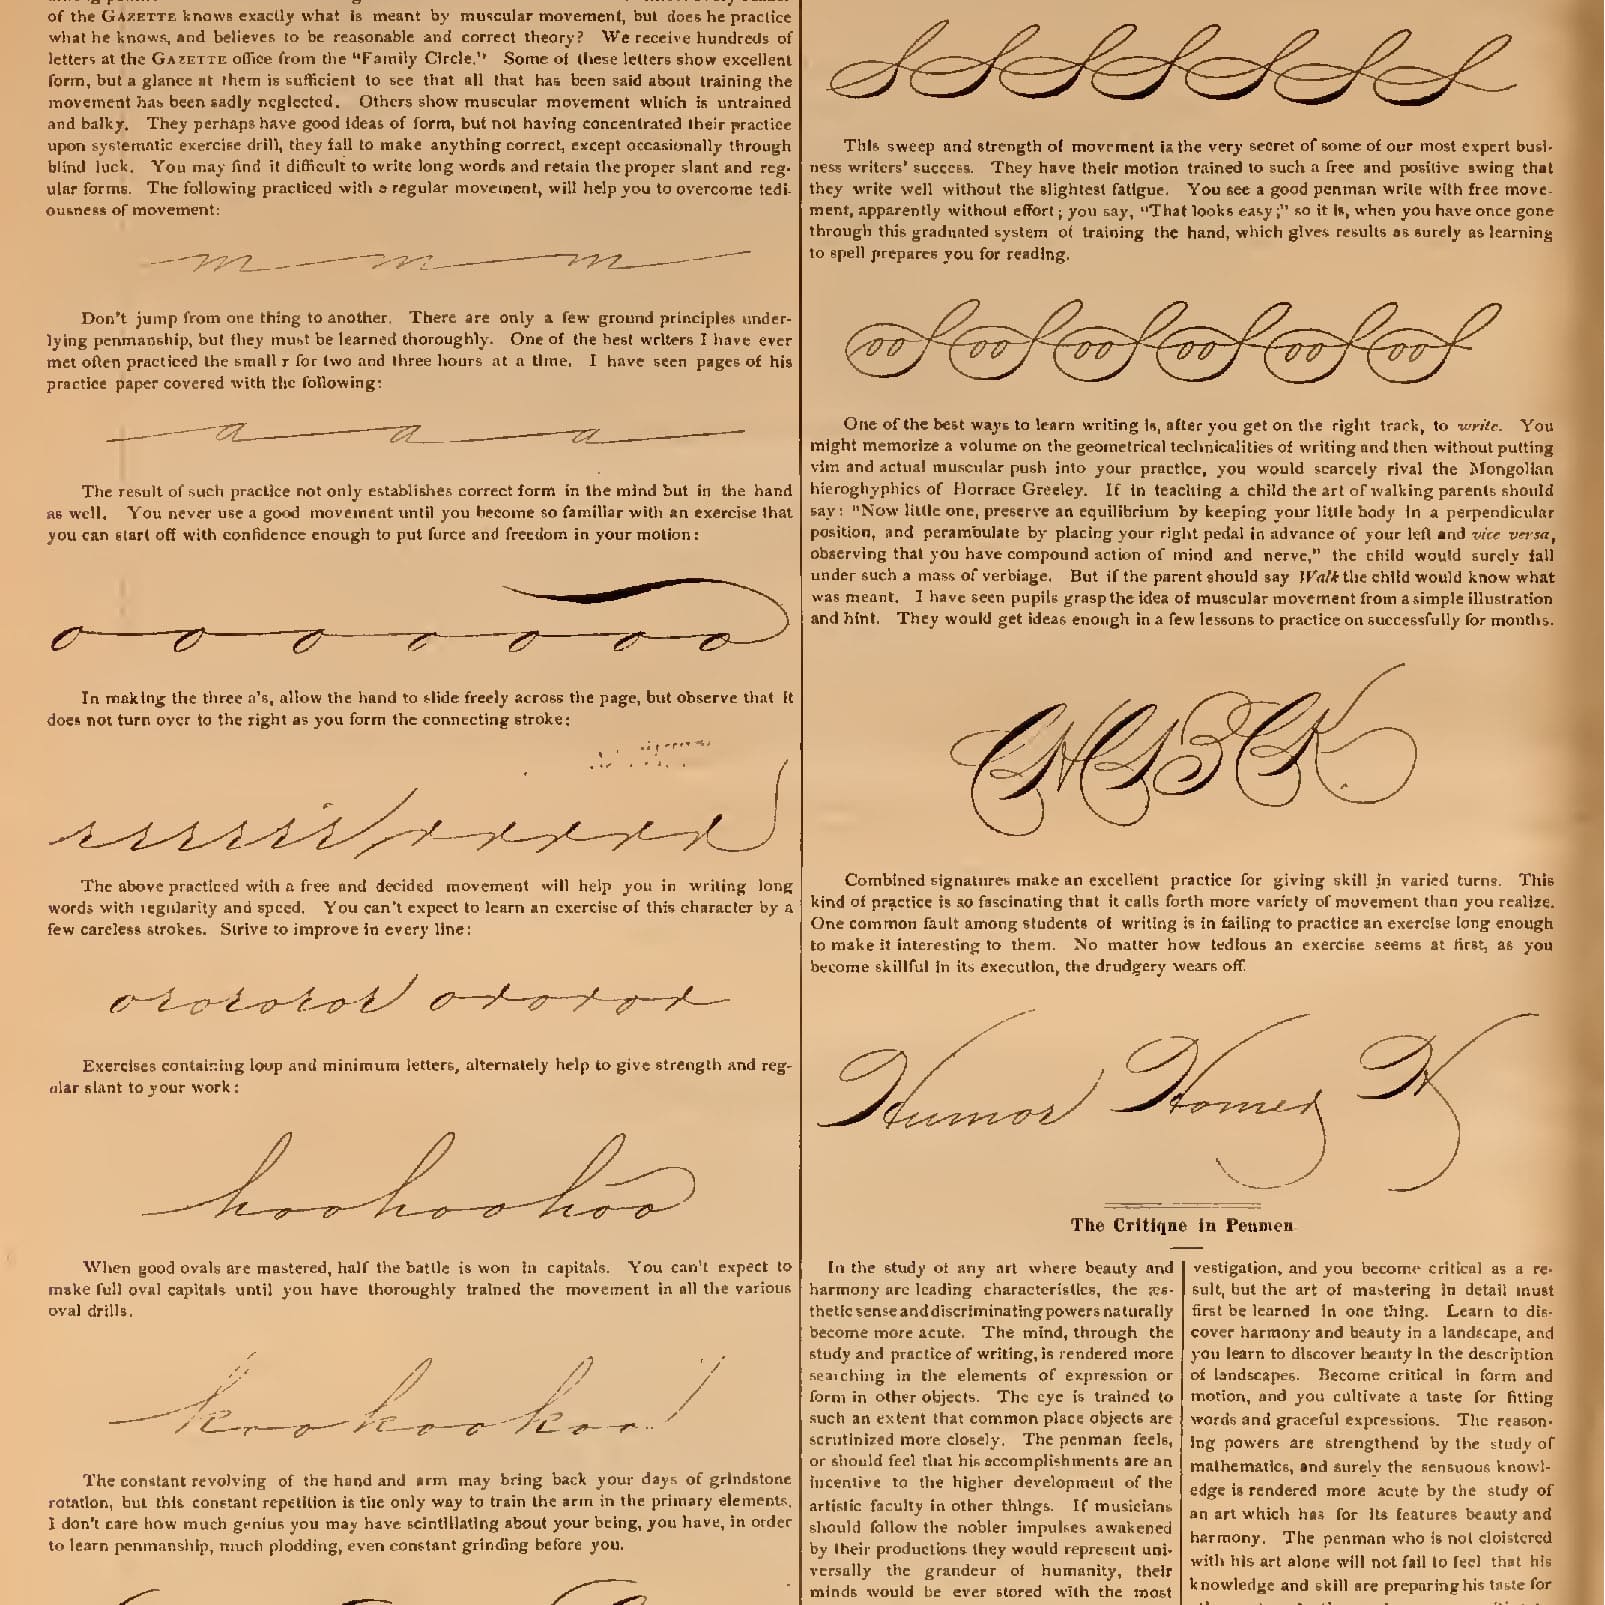 of the GAZETTE knows exactly what is meant by muscular movement, but does he practice
what he knows, and believes to be reasonable and correct theory? We receive hundreds of
letters at the GAZETTE office from the "Family Circle." Some of these letters show excellent
form, but a glance at them is sufficient to see that all that has been said about training the
movement has been sadly neglected. Others show muscular movement which is untrained
and balky. They perhaps have good ideas of form, but not having concentrated their practice
upon systematic exercise drill, they fail to make anything correct, except occasionally through
blind luck. You may find it difficult to write long words and retain the proper slant and reg-
ular forms. The following practiced with a regular movement, will help you to overcome tedi-
ousness of movement:
m m m
Don't jump from one thing to another. There are only a few ground principles under-
lying penmanship, but they must be learned thoroughly. One of the best writers I have ever
met often practiced the small r for two and three hours at a time. I have seen pages of his
practice paper covered with the following:
a a a
The result of such practice not only establishes correct form in the mind but in the hand
as well. You never use a good movement until you become so familiar with an exercise that
you can start off with confidence enough to put force and freedom in your motion:
o o o o o o o
In making the three a's, allow the hand to slide freely across the page, but observe that it
does not turn over to the right as you form the connecting stroke:
The above practiced with a free and decided movement will help you in writing long
words with regularity and speed. You can't expect to learn an exercise of this character by a
few careless strokes. Strive to improve in every line:
orororor orororor
Exercises containing loup and minimum letters, alternately help to give strength and reg-
ular slant to your work:
hoohoohoo
When good ovals are mastered, half the battle is won in capitals. You can't expect to
make full oval capitals until you have thoroughly trained the movement in all the various
oval drills.
kookookoo
The constant revolving of the hand and arm may bring back your days of grindstone
rotation, but this constant repetition is the only way to train the arm in the primary elements.
I don't care how much genius you may have scintillating about your being, you have, in order
to learn penmanship, much plodding, even constant grinding before you.
This sweep and strength of movement is the very secret of some of our most expert busi-
ness writers' success. They have their motion trained to such a free and positive swing that
they write well without the slightest fatigue. You see a good penman write with free move-
ment, apparently without effort; you say, "That looks easy;" so it is, when you have once gone
through this graduated system of training the hand, which gives results as surely as learning
to spell prepares you for reading.
oo oo oo oo oo oo
One of the best ways to learn writing is, after you get on the right track, to write. You
might memorize a volume on the geometrical technicalities of writing and then without putting
vim and actual muscular push into your practice, you would scarcely rival the Mongolian
hieroghyphics of Horrace Greeley. If in teaching a child the art of walking parents should
say: "Now little one, preserve an equilibrium by keeping your little body in a perpendicular
position, and perambulate by placing your right pedal in advance of your left and vice versa,
observing that you have compound action of mind and nerve," the child would surely fall
under such a mass of verbiage. But if the parent should say Walk the child would know what
was meant. I have seen pupils grasp the idea of muscular movement from a simple illustration
and hint. They would get ideas enough in a few lessons to practice on successfully for months.
Combined signatures make an excellent practice for giving skill in varied turns. This
kind of practice is so fascinating that it calls forth more variety of movement than you realize.
One common fault among students of writing is in failing to practice an exercise long enough
to make it interesting to them. No matter how tedious an exercise seems at first, as you
become skillful in its execution, the drudgery wears off.
Humor Homer H
The Critique in Penmen
In the study of any art where beauty and
harmony are leading characteristics, the æs-
thetic sense and discriminating powers naturally
become more acute. The mind, through the
study and practice of writing, is rendered more
searching in the elements of expression or
form in other objects. The eye is trained to
such an extent that common place objects are
scrutinized more closely. The penman feels,
or should feel that his accomplishments are an
incentive to the higher development of the
artistic faculty in other things. If musicians
should follow the nobler impulses awakened
by their productions they would represent uni-
versally the grandeur of humanity, their
minds would be ever stored with the most
vestigation, and you become critical as a re-
sult, but the art of mastering in detail must
first be learned in one thing. Learn to dis-
cover harmony and beauty in a landscape, and
you learn to discover beauty in the description
of landscapes. Become critical in form and
motion, and you cultivate a taste for fitting
words and graceful expressions. The reason-
ing powers are strengthend by the study of
mathematics, and surely the sensuous knowl-
edge is rendered more acute by the study of
an art which has for its features beauty and
harmony. The penman who is not cloistered
with his art alone will not fail to feel that his
knowledge and skill are preparing his taste for